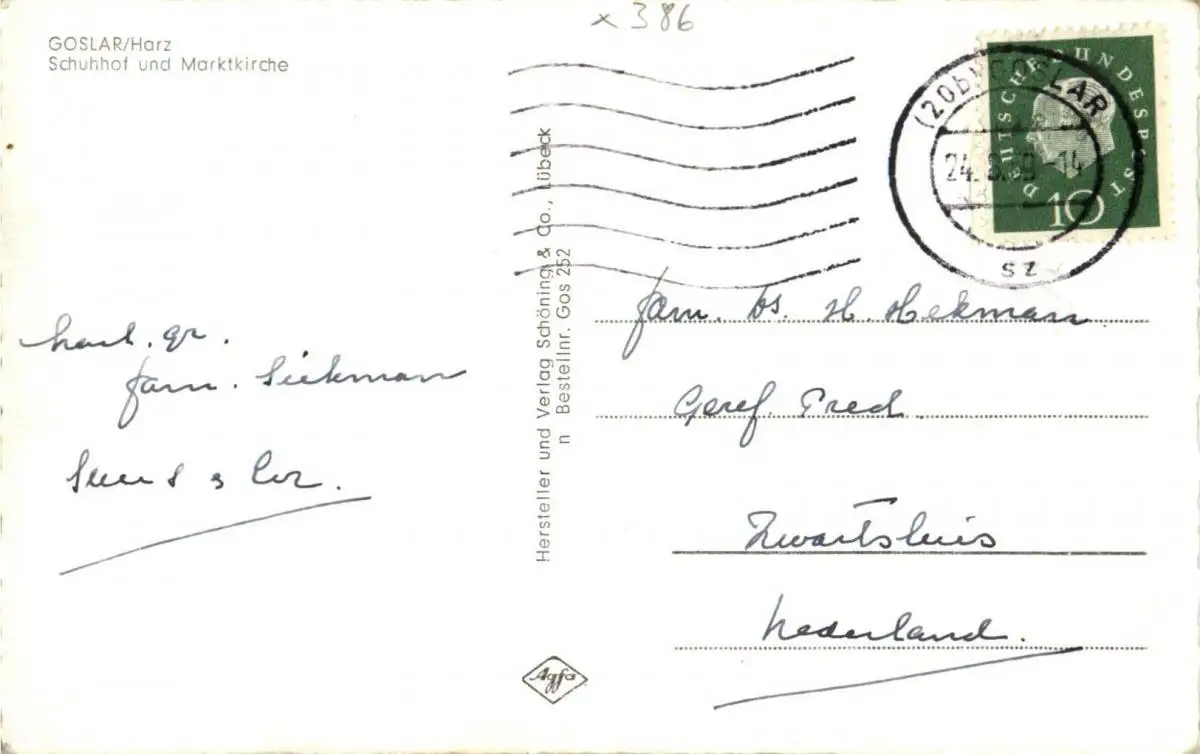 x 386
GOSLAR/Harz
Schuhhof und Marktkirche
DEUTSCHE BUNDESPOST
10
(20b) GOSLAR
24. 8.59-14
sz
hart. gr.
fam. Siekman
& Cor.
Hersteller und Verlag Schöning & Co., Lübeck
n Bestellnr. Gos 252
fam. Ds. H. Hekman
Geref. Pred.
Zwartsluis
Nederland.
Agfa